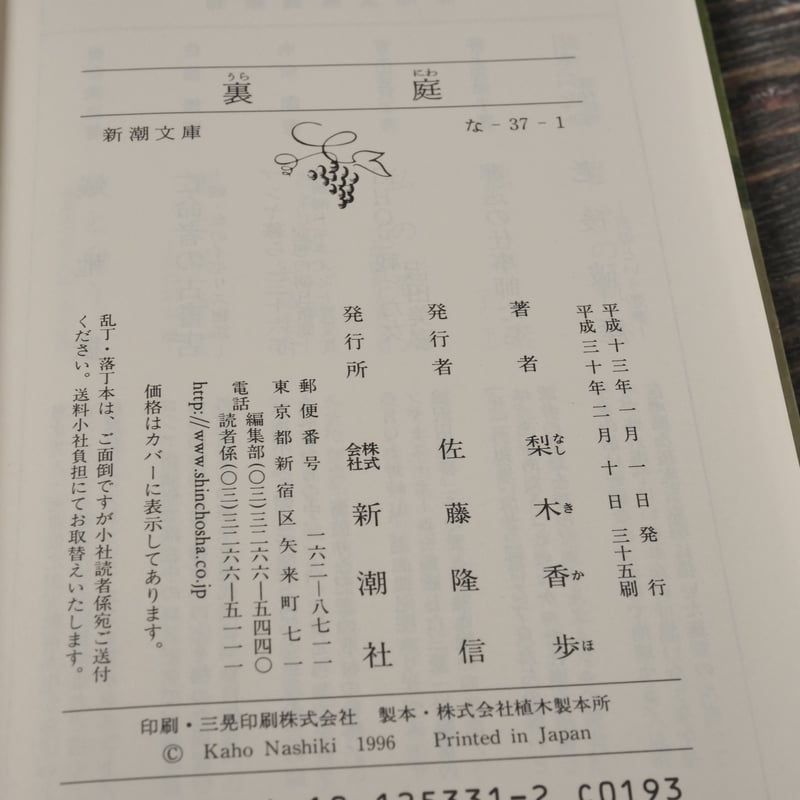 裏庭
うら にわ
新潮文庫 な-37-1
平成十三年一月一日発行
平成三十年二月十日三十五刷
著者 梨木香歩
なし き か ほ
発行者 佐藤隆信
発行所 株式会社 新潮社
郵便番号 一六二―八七一一
東京都新宿区矢来町七一
電話 編集部(〇三)三二六六―五四四〇
読者係(〇三)三二六六―五一一一
http://www.shinchosha.co.jp
価格はカバーに表示してあります。
乱丁・落丁本は、ご面倒ですが小社読者係宛ご送付
ください。送料小社負担にてお取替えいたします。
印刷・三晃印刷株式会社 製本・株式会社植木製本所
© Kaho Nashiki 1996 Printed in Japan
125331-2 C0193